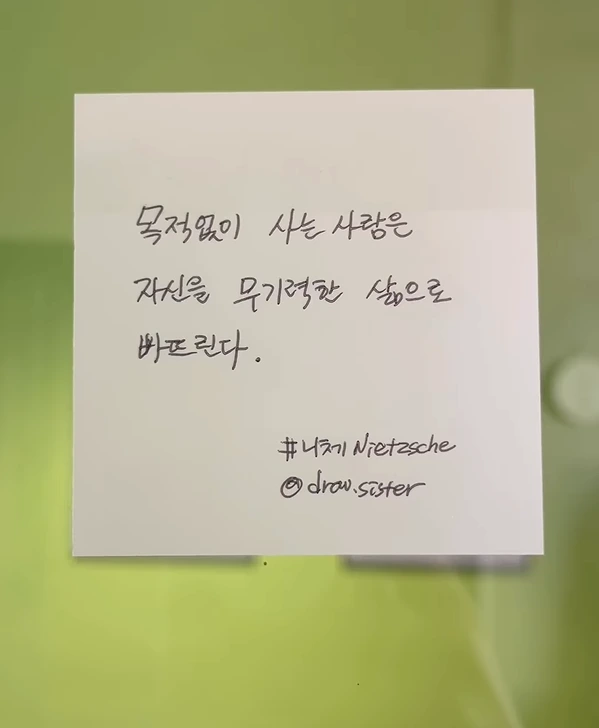 목적없이 사는 사람은
자신을 무기력한 삶으로
빠뜨린다.
#니체 Nietzsche
@draw.sister